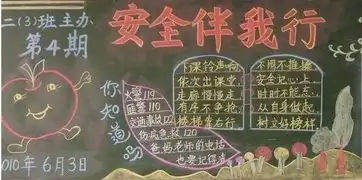 二(3)班主办
第4期
安全伴我行
你知道吗
火警119
匪警110
交通事故122
伤病急救120
爸妈老师的电话
也要记得清
下课铃声响,
依次出课堂,
走廊慢慢走,
有序不争抢,
楼梯靠右行,
不闹不推搡,
安全记心上,
时时不能忘,
从自身做起,
树立好榜样,
010年6月3日